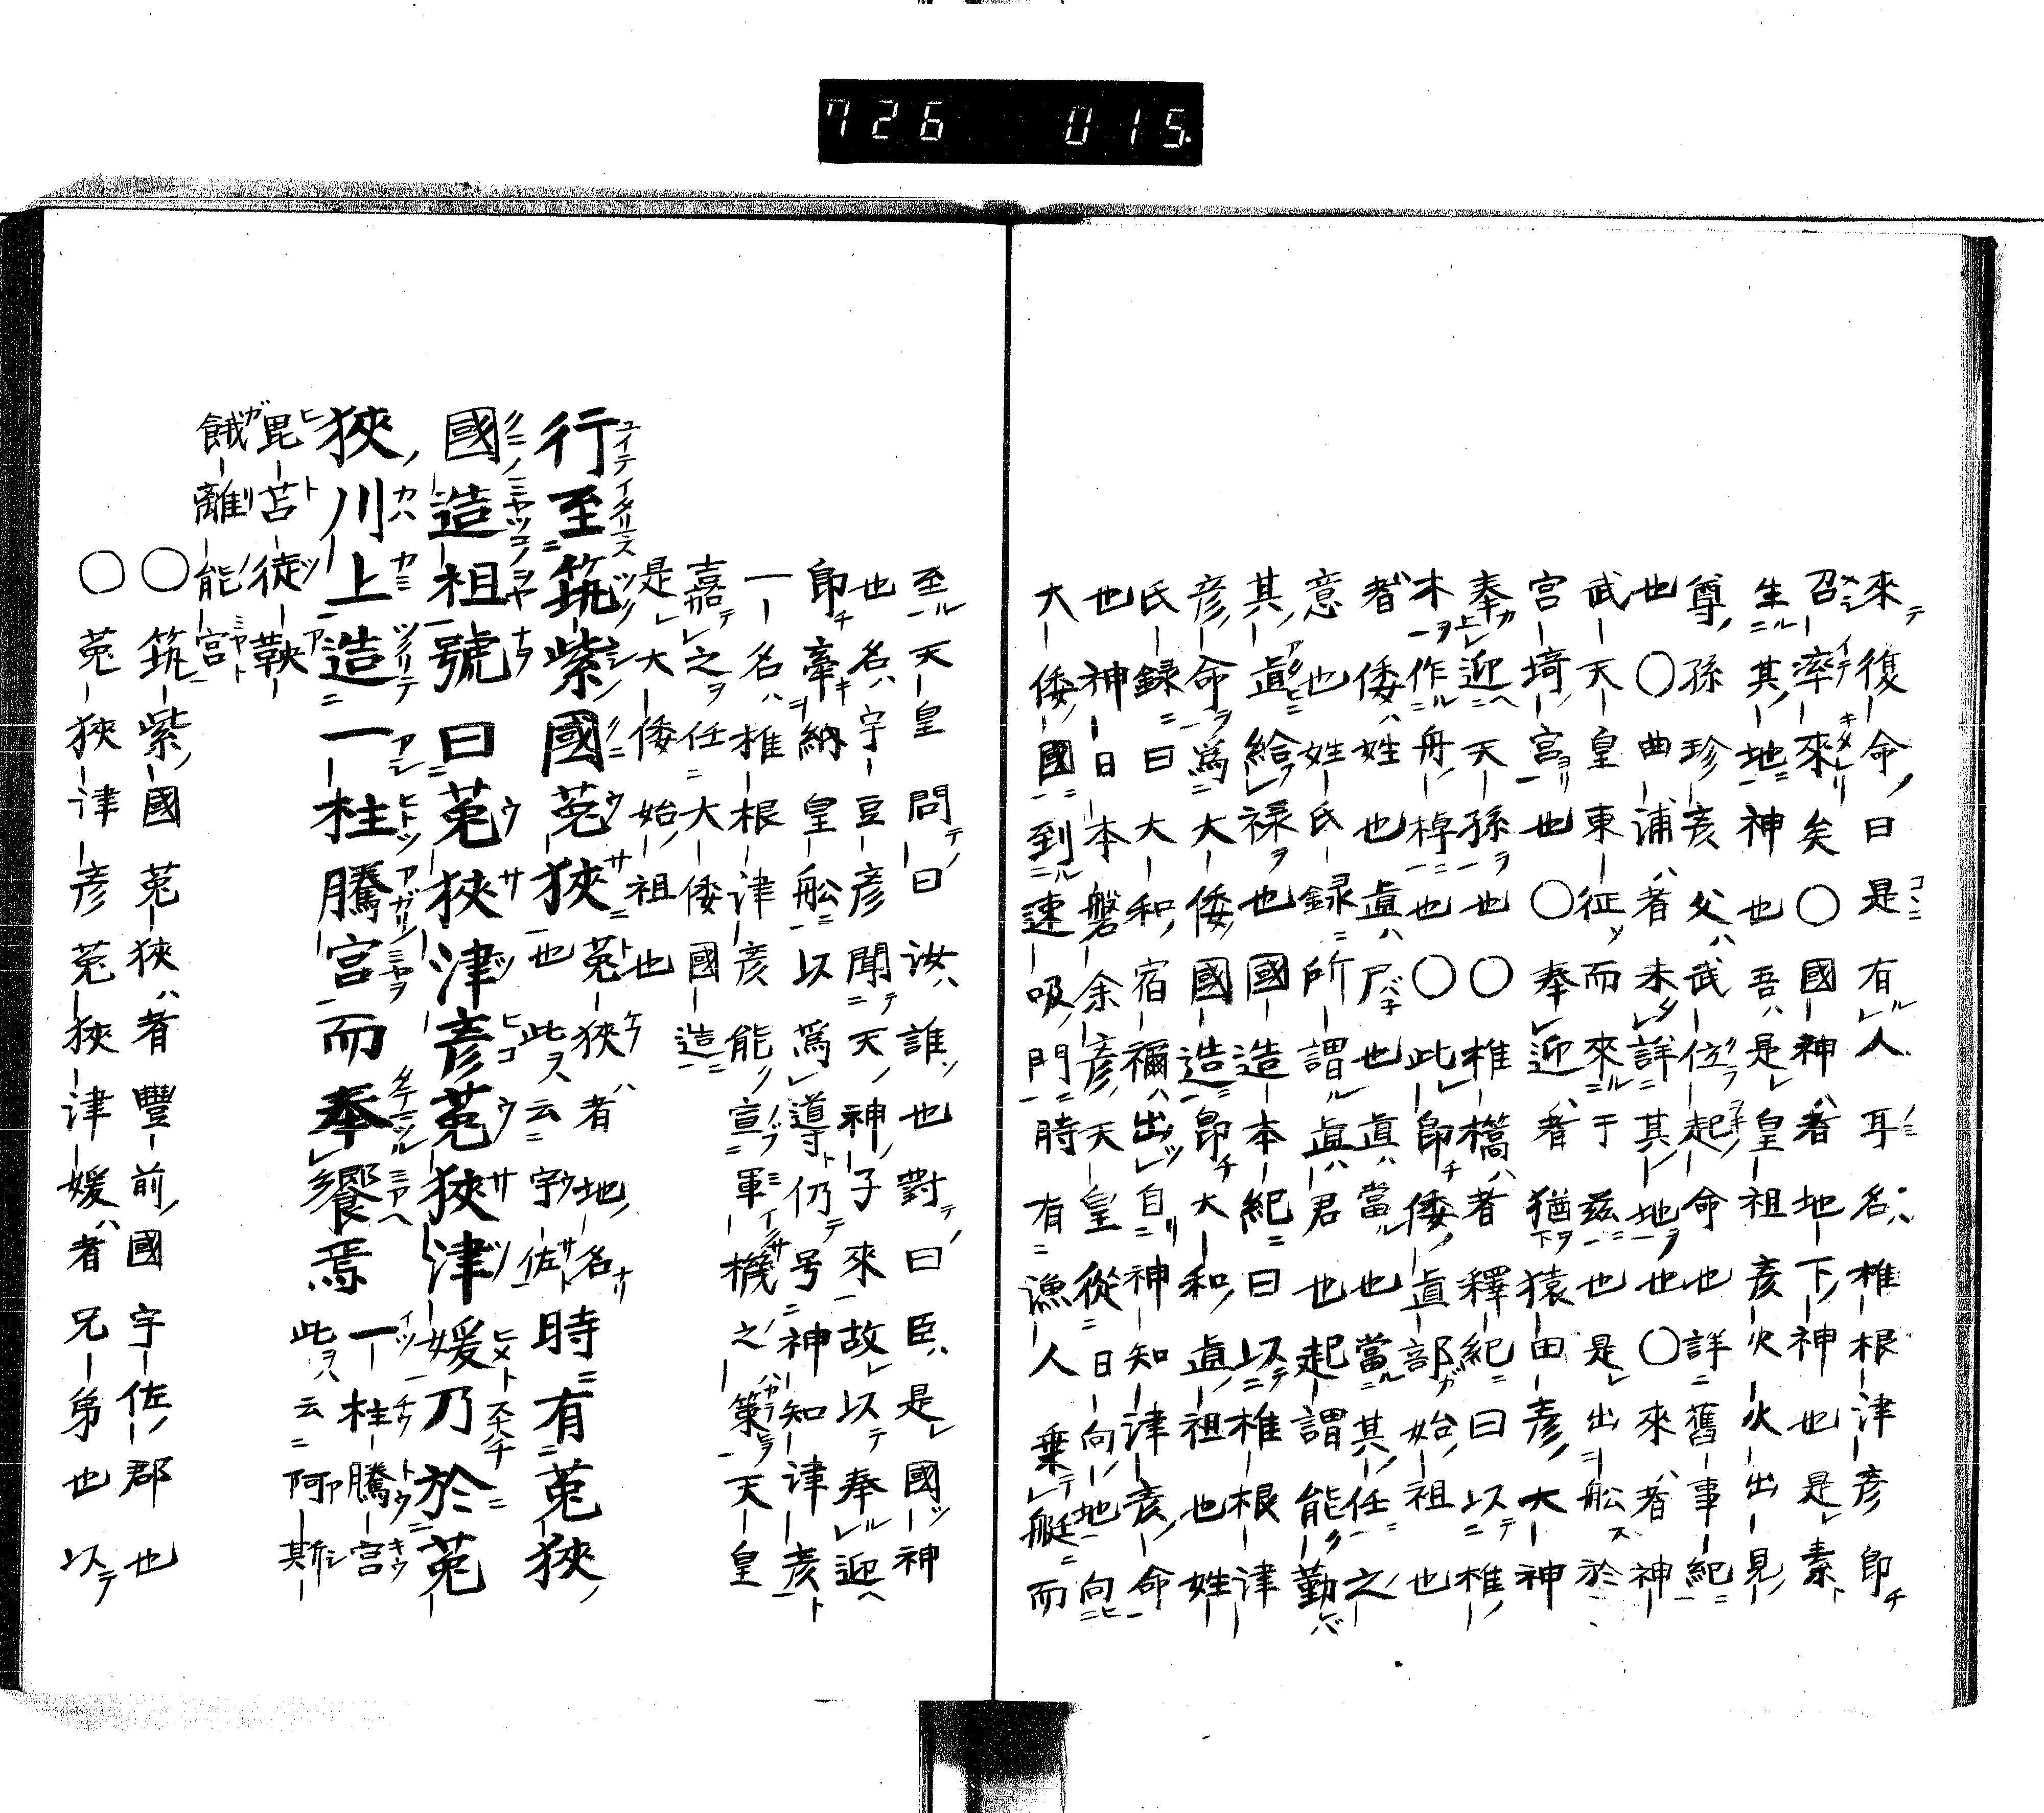 726 015
來復命曰是有人耳名椎根津彦即
召率來矣○國神者地下神也是素
生其地神也吾是皇祖彦火火出見
尊孫珍彦父武位起命也詳舊事紀
也○曲浦者未詳其地也○來者神
武天皇東征而來于茲也是出船於
宮埼宮也○奉迎者猶猿田彦大神
奉迎天孫也○椎檮者釋紀曰以椎
木作舟棹也○此即倭直部始祖也
者倭姓也直尸也直當也當其任之
意也姓氏録所謂直君也起謂能勤
其直給禄也國造本紀曰以椎根津
彦命爲大倭國造即大和直祖也姓
氏録曰大和宿禰出自神知津彦命
也神日本磐余彦天皇從日向地向
大倭國到速吸門時有漁人乗艇而
至天皇問曰汝誰也對曰臣是國神
也名宇豆彦聞天神子來故以奉迎
即牽納皇船以爲導仍号神知津彦
一名椎根津彦能宣軍機之策天皇
嘉之任大倭國造
是大倭始祖也
行至筑紫國菟狹菟狹者地名也此云宇佐時有菟狹
國造祖號曰菟狹津彦菟狹津媛乃於菟
狹川上造一柱騰宮而奉饗焉一柱騰宮此云阿斯
毘苫徒鞅
餓離能宮
○筑紫國菟狹者豐前國宇佐郡也
○菟狹津彦菟狹津媛者兄弟也以